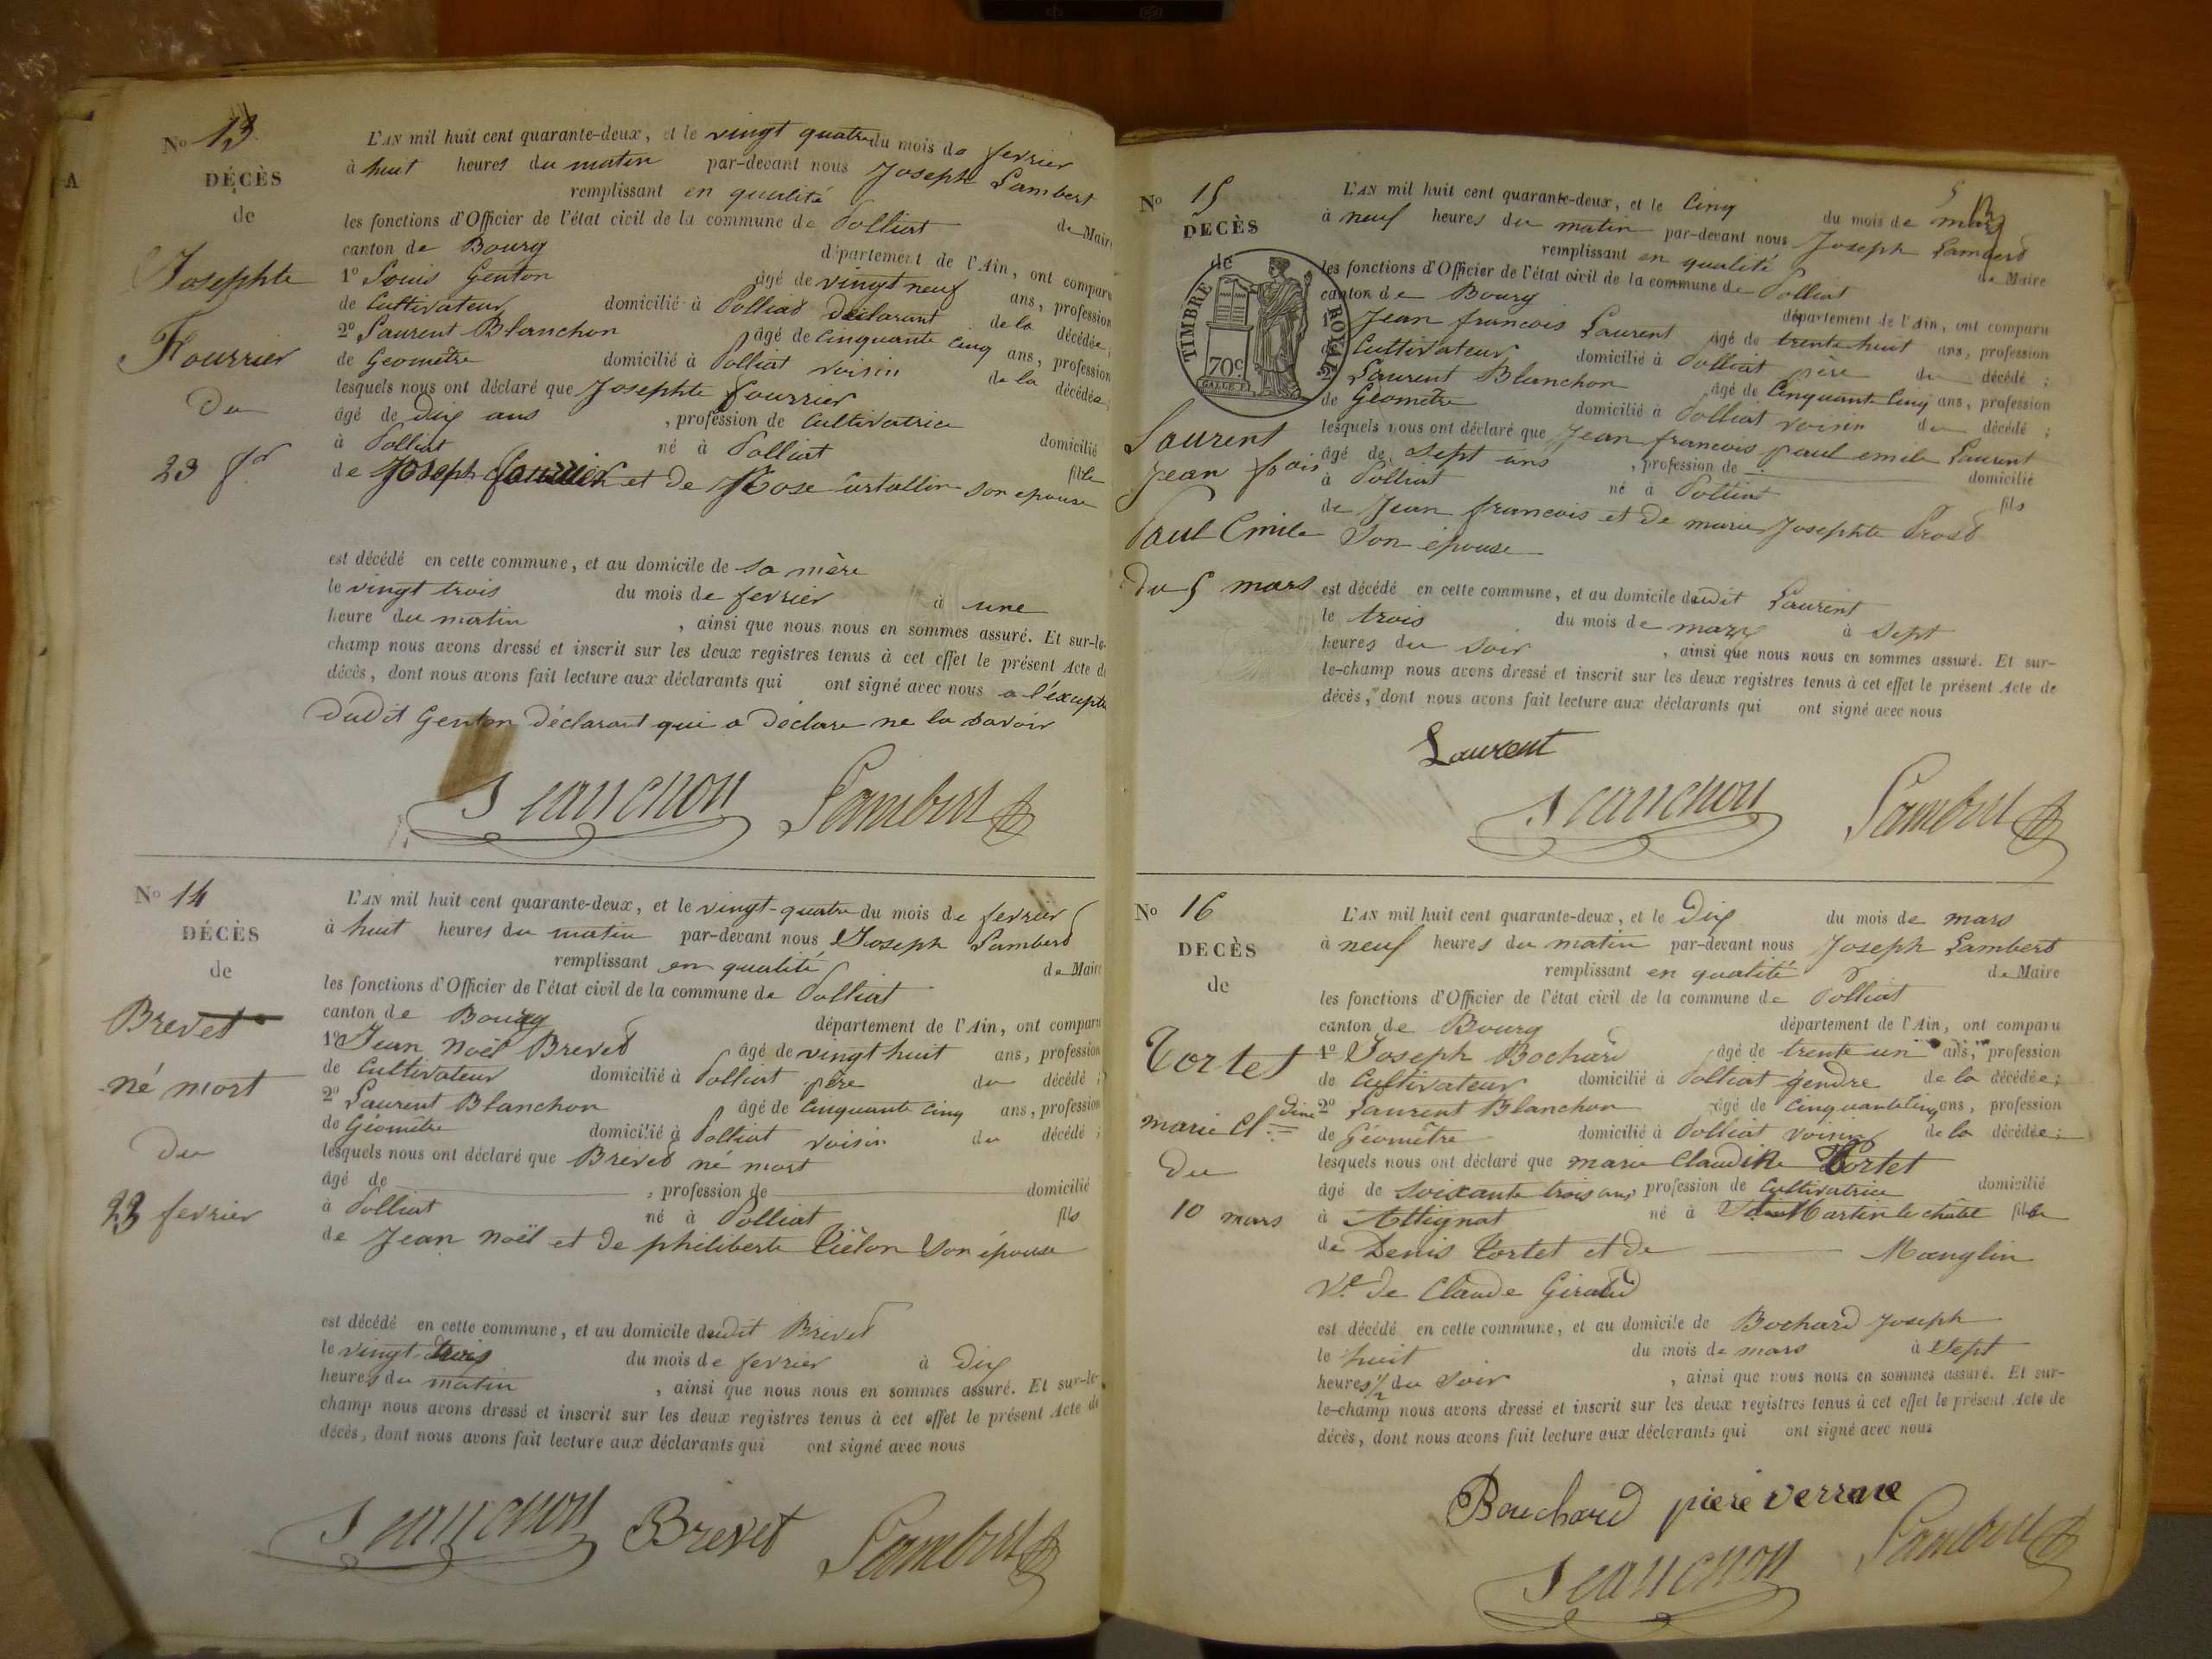 A
No 13
DÉCÈS
de
Josephte
Fourrier
Du
23 fr
L'AN mil huit cent quarante-deux, et le vingt quatre du mois de fevrier
à huit heures du matin par-devant nous Joseph Lambert
remplissant en qualité de Maire
les fonctions d'Officier de l'état civil de la commune de Polliat
canton de Bourg département de l'Ain, ont comparu
1º Louis Genton âgé de vingt neuf ans, profession
de Cultivateur domicilié à Polliat Déclarant de la décédée;
2º Laurent Blanchon âgé de cinquante cinq ans, profession
de Geomètre domicilié à Polliat voisin de la décédée;
lesquels nous ont déclaré que Josephte fourrier
âgé de Dix ans , profession de Cultivatrice domicilié
à Polliat né à Polliat fille
de Joseph fourrier et de Rose son epouse
est décédé en cette commune, et au domicile de sa mère
le vingt trois du mois de fevrier à une
heure du matin , ainsi que nous nous en sommes assuré. Et sur-le-
champ nous avons dressé et inscrit sur les deux registres tenus à cet effet le présent Acte de
décès, dont nous avons fait lecture aux déclarants qui ont signé avec nous a l'excepté
dudit Genton Déclarant qui a Déclare ne la savoir
Blanchon Lambert
No 14
DÉCÈS
de
Brevet
né mort
Du
23 fevrier
L'AN mil huit cent quarante-deux, et le vingt-quatre du mois de fevrier
à huit heures du matin par-devant nous Joseph Lambert
remplissant en qualité de Maire
les fonctions d'Officier de l'état civil de la commune de Polliat
canton de Bourg département de l'Ain, ont comparu
1º Jean Noël Brevet âgé de vingt huit ans, profession
de Cultivateur domicilié à Polliat père du décédé;
2º Laurent Blanchon âgé de cinquante cinq ans, profession
de Géomètre domicilié à Polliat voisin du décédé;
lesquels nous ont déclaré que Brevet né mort
âgé de , profession de domicilié
à Polliat né à Polliat fils
de Jean Noël et de philiberte son épouse
est décédé en cette commune, et au domicile dudit Brevet
le vingt trois du mois de fevrier à Dix
heures du matin , ainsi que nous nous en sommes assuré. Et sur-le-
champ nous avons dressé et inscrit sur les deux registres tenus à cet effet le présent Acte de
décès, dont nous avons fait lecture aux déclarants qui ont signé avec nous
Blanchon Brevet Lambert
No 15
DÉCÈS
de
TIMBRE ROYAL
70c
Laurent
Jean frois
Paul Emile
Du 5 mars
L'AN mil huit cent quarante-deux, et le Cinq du mois de mars
à neuf heures du matin par-devant nous Joseph Lambert
remplissant en qualité de Maire
les fonctions d'Officier de l'état civil de la commune de Polliat
canton de Bourg département de l'Ain, ont comparu
Jean francois Laurent âgé de trente huit ans, profession
Cultivateur domicilié à Polliat père du décédé;
2º Laurent Blanchon âgé de Cinquante Cinq ans, profession
de Géomètre domicilié à Polliat voisin du décédé;
lesquels nous ont déclaré que Jean francois paul emile Laurent
âgé de sept ans , profession de domicilié
à Polliat né à Polliat fils
de Jean francois et de marie Josephte Prost
Son épouse
est décédé en cette commune, et au domicile dudit Laurent
le trois du mois de mars à sept
heures du soir , ainsi que nous nous en sommes assuré. Et sur-
le-champ nous avons dressé et inscrit sur les deux registres tenus à cet effet le présent Acte de
décès, dont nous avons fait lecture aux déclarants qui ont signé avec nous
Laurent
Blanchon Lambert
No 16
DÉCÈS
de
Tortet
marie Cldine
Du
10 mars
L'AN mil huit cent quarante-deux, et le Dix du mois de mars
à neuf heures du matin par-devant nous Joseph Lambert
remplissant en qualité de Maire
les fonctions d'Officier de l'état civil de la commune de Polliat
canton de Bourg département de l'Ain, ont comparu
1º Joseph Bochard âgé de trente un ans, profession
de Cultivateur domicilié à Polliat gendre de la décédée;
2º Laurent Blanchon âgé de cinquante cinq ans, profession
de Géomètre domicilié à Polliat voisin de la décédée;
lesquels nous ont déclaré que marie Claudine Tortet
âgé de soixante trois ans profession de Cultivatrice domicilié
à Attignat né à Saint Martin le chatel fille
de Denis Tortet et de Manglin
Ve de Claude Giraud
est décédé en cette commune, et au domicile de Bochard Joseph
le huit du mois de mars à Sept
heures 1/2 du soir , ainsi que nous nous en sommes assuré. Et sur-
le-champ nous avons dressé et inscrit sur les deux registres tenus à cet effet le présent Acte de
décès, dont nous avons fait lecture aux déclarants qui ont signé avec nous
Bouchard
Blanchon Lambert